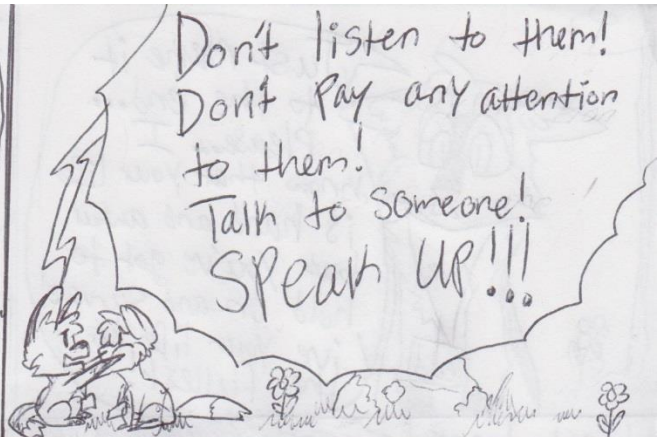 Don't listen to them!
Don't Pay any attention
to them!
Talk to someone!
SPeak UP!!!